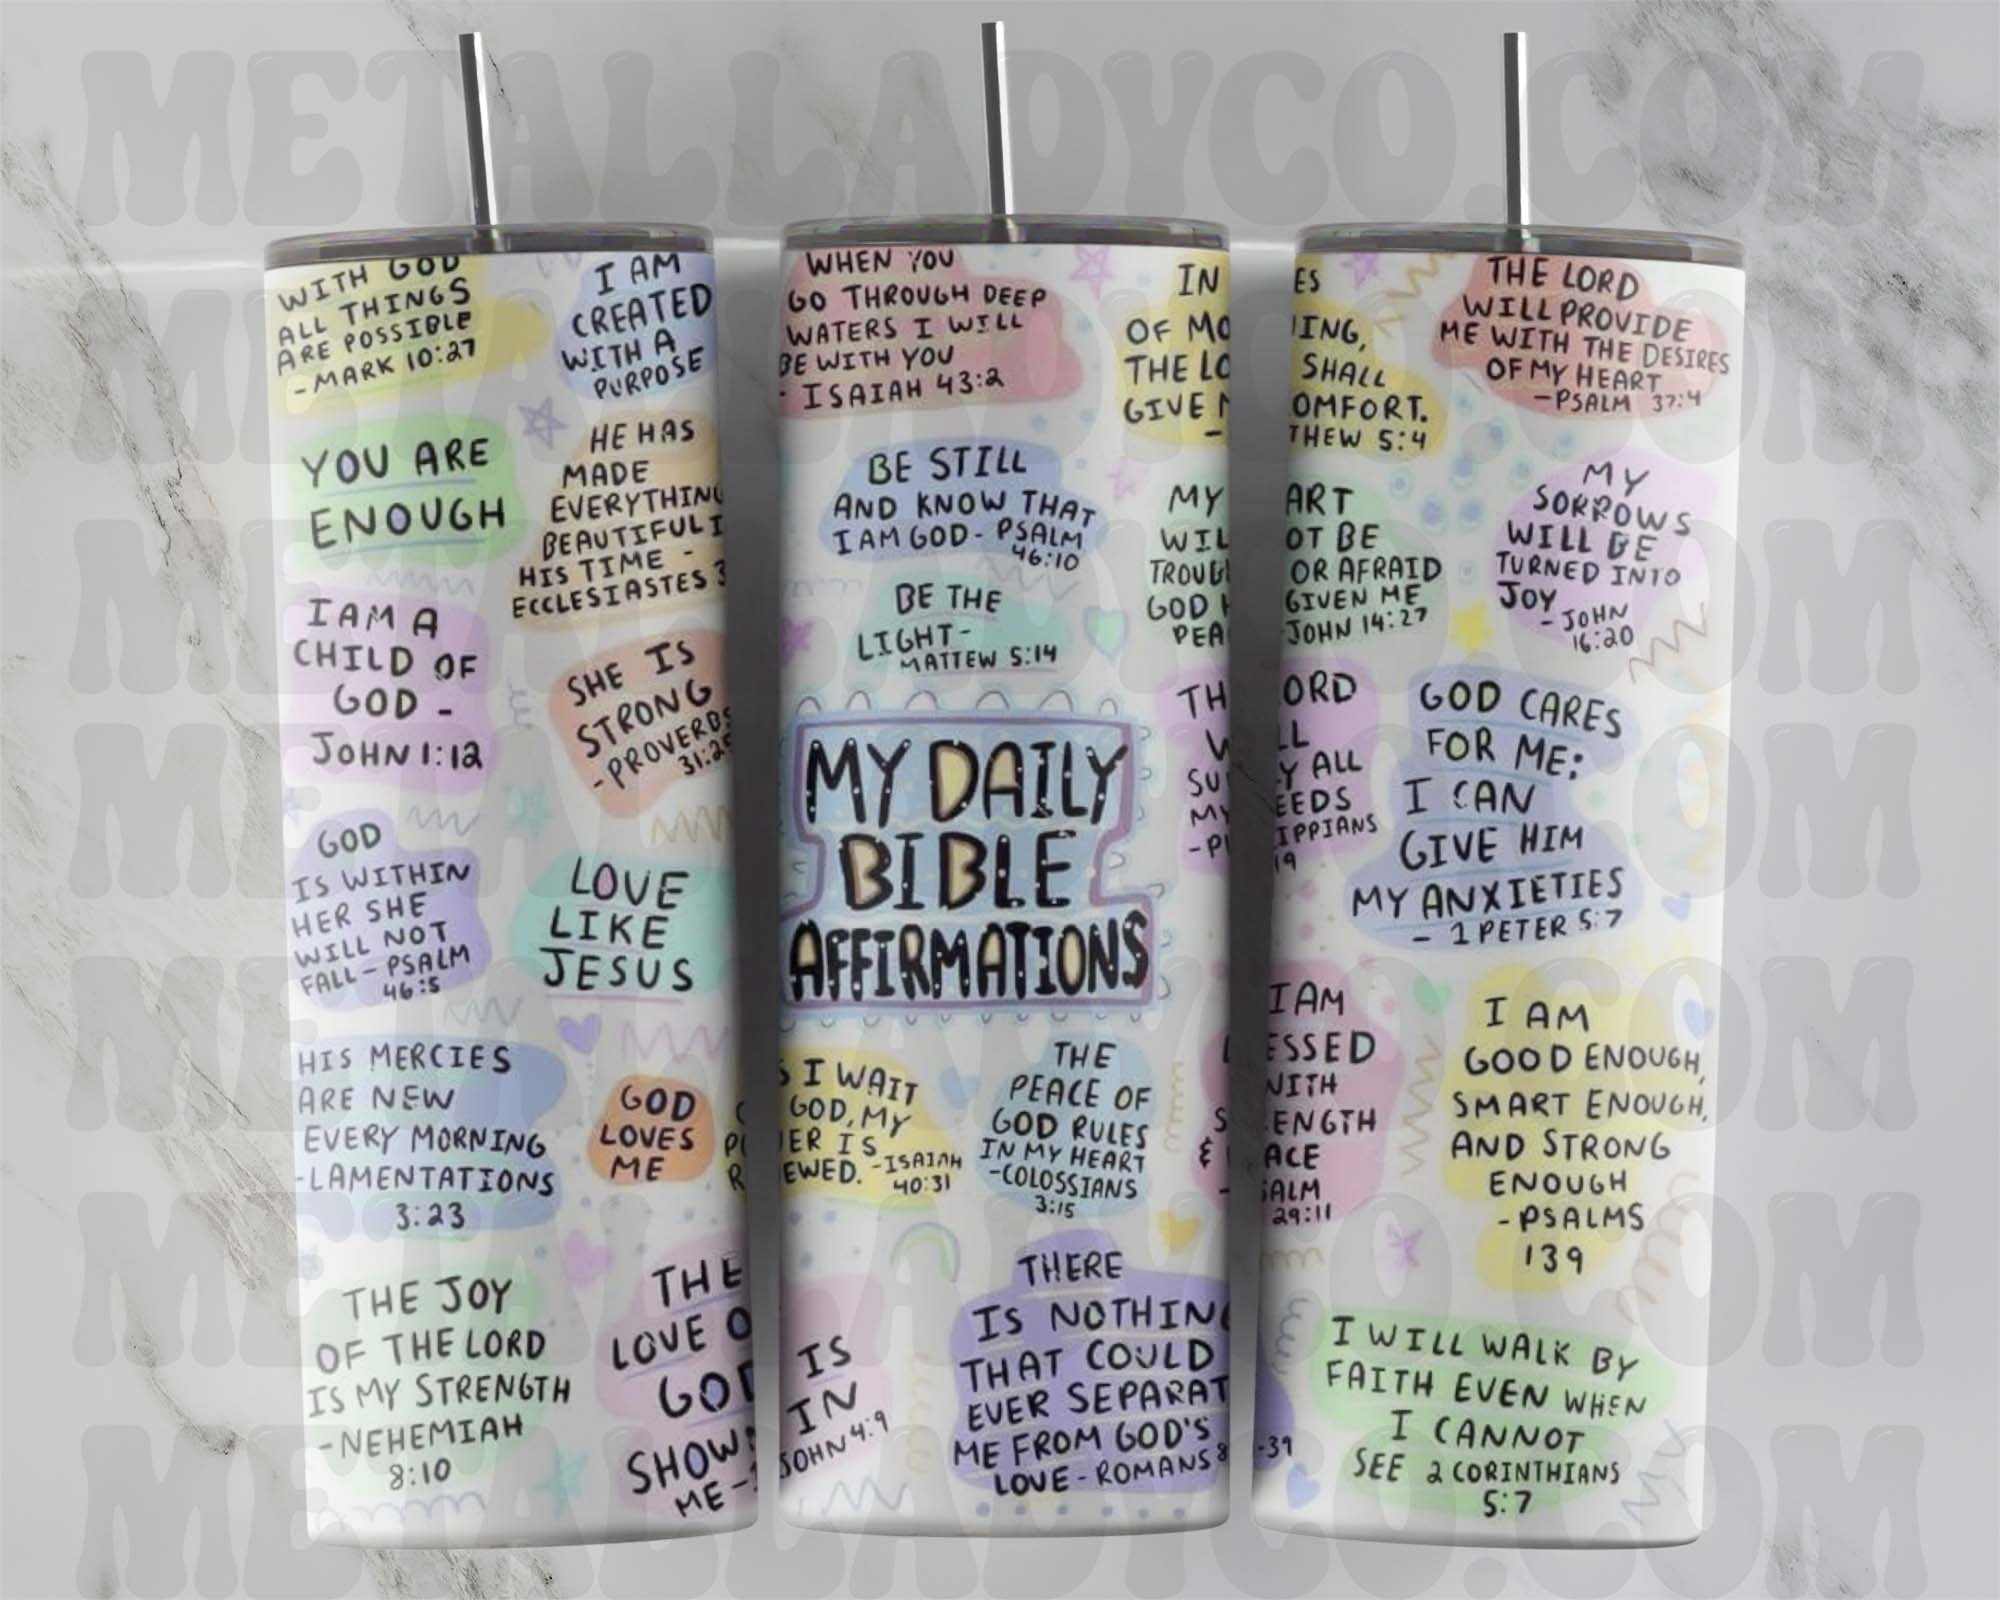 METALLADYCO.COM
WITH GOD
ALL THINGS
ARE POSSIBLE
-MARK 10:27
I AM
CREATED
WITH A
PURPOSE
YOU ARE
ENOUGH
HE HAS
MADE
EVERYTHING
BEAUTIFUL I
HIS TIME -
ECCLESIASTES 3
I AM A
CHILD OF
GOD -
JOHN 1:12
SHE IS
STRONG
-PROVERBS
31:25
GOD
IS WITHIN
HER SHE
WILL NOT
FALL - PSALM
46:5
LOVE
LIKE
JESUS
HIS MERCIES
ARE NEW
EVERY MORNING
-LAMENTATIONS
3:23
GOD
LOVES
ME
THE JOY
OF THE LORD
IS MY STRENGTH
-NEHEMIAH
8:10
THE
LOVE O
GOD
SHOW
ME -
WHEN YOU
GO THROUGH DEEP
WATERS I WILL
BE WITH YOU
- ISAIAH 43:2
IN
OF MO
THE LO
GIVE M
-
BE STILL
AND KNOW THAT
I AM GOD - PSALM
46:10
MY
WIL
TROUB
GOD H
PEA
BE THE
LIGHT -
MATTEW 5:14
TH
W
SU
MY
-P
MY DAILY
BIBLE
AFFIRMATIONS
S I WAIT
GOD, MY
ER IS
EWED. -ISAIAH
40:31
THE
PEACE OF
GOD RULES
IN MY HEART
-COLOSSIANS
3:15
IS
IN
JOHN 4:9
THERE
IS NOTHING
THAT COULD
EVER SEPARAT
ME FROM GOD'S
LOVE - ROMANS 8
ES
ING,
SHALL
OMFORT.
THEW 5:4
THE LORD
WILL PROVIDE
ME WITH THE DESIRES
OF MY HEART
-PSALM 37:4
ART
OT BE
OR AFRAID
GIVEN ME
JOHN 14:27
MY
SORROWS
WILL BE
TURNED INTO
JOY
- JOHN
16:20
ORD
LL
Y ALL
EEDS
IPPIANS
19
GOD CARES
FOR ME:
I CAN
GIVE HIM
MY ANXIETIES
- 1 PETER 5:7
I AM
ESSED
WITH
ENGTH
ACE
SALM
29:11
I AM
GOOD ENOUGH,
SMART ENOUGH,
AND STRONG
ENOUGH
-PSALMS
139
-39
I WILL WALK BY
FAITH EVEN WHEN
I CANNOT
SEE 2 CORINTHIANS
5:7